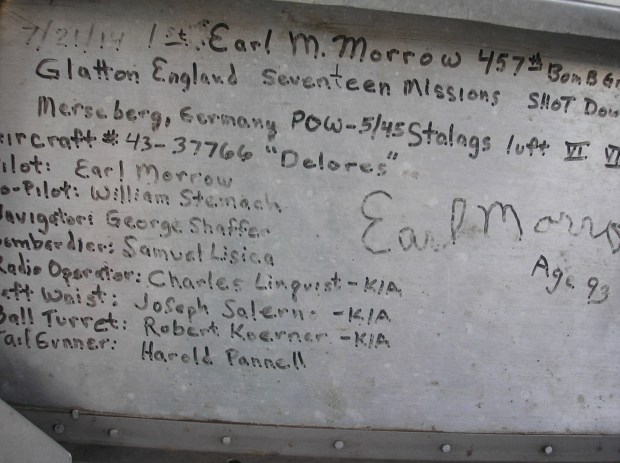 7/21/14 1st. Earl M. Morrow 457th Bomb Gr
Glatton England Seventeen Missions SHOT Dow
Merseberg, Germany POW-5/45 Stalags luft III VI
ircraft # 43-37766 "Delores"
ilot: Earl Morrow
o-Pilot: William Stemach
avigator: George Shaffer
ombardier: Samuel Lisica
Radio Operator: Charles Linquist - KIA
eft Waist: Joseph Salerno - KIA
Ball Turret: Robert Koerner - KIA
Tail Gunner: Harold Pannell
Earl Morro
Age 93